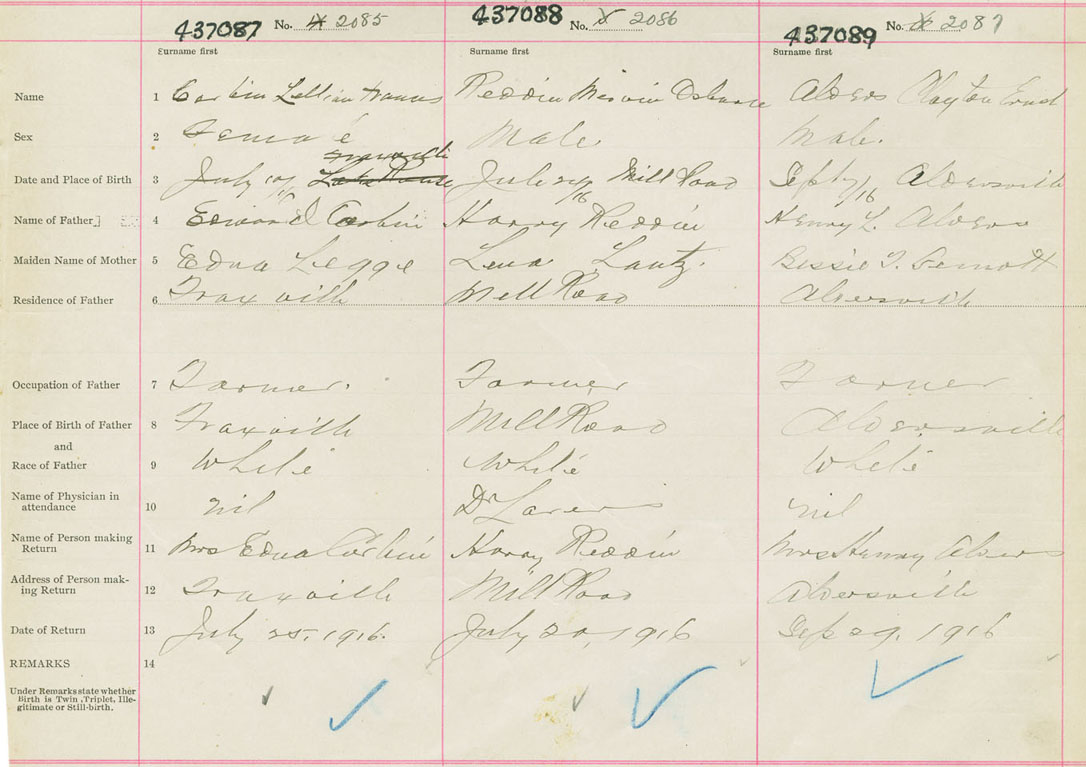 437087 No. 2085 437088 No. 2086 437089 No. 2087
Surname first Surname first Surname first
Name 1 Corbin Lillian Reddin Mervin Osborne Alders Clayton
Sex 2 Female Male Male.
Date and Place of Birth 3 July Traxville July Mill Road Sept 17/16 Aldersville
Name of Father 4 Edward Corbin Harry Reddin Henry L. Alders
Maiden Name of Mother 5 Edna Legge Lena Lantz. Bessie
Residence of Father 6 Traxville Mill Road Aldersville
Occupation of Father 7 Farmer. Farmer Farmer
Place of Birth of Father 8 Fraxville Mill Road Aldersville
and
Race of Father 9 White White White
Name of Physician in
attendance 10 nil Dr nil
Name of Person making
Return 11 Mrs Edna Corbin Harry Reddin Mrs Henry Alders
Address of Person mak-
ing Return 12 Traxville Mill Road Aldersville
Date of Return 13 July 25, 1916. July 20, 1916 Sept 29, 1916
REMARKS 14
Under Remarks state whether
Birth is Twin, Triplet, Ille-
gitimate or Still-birth.